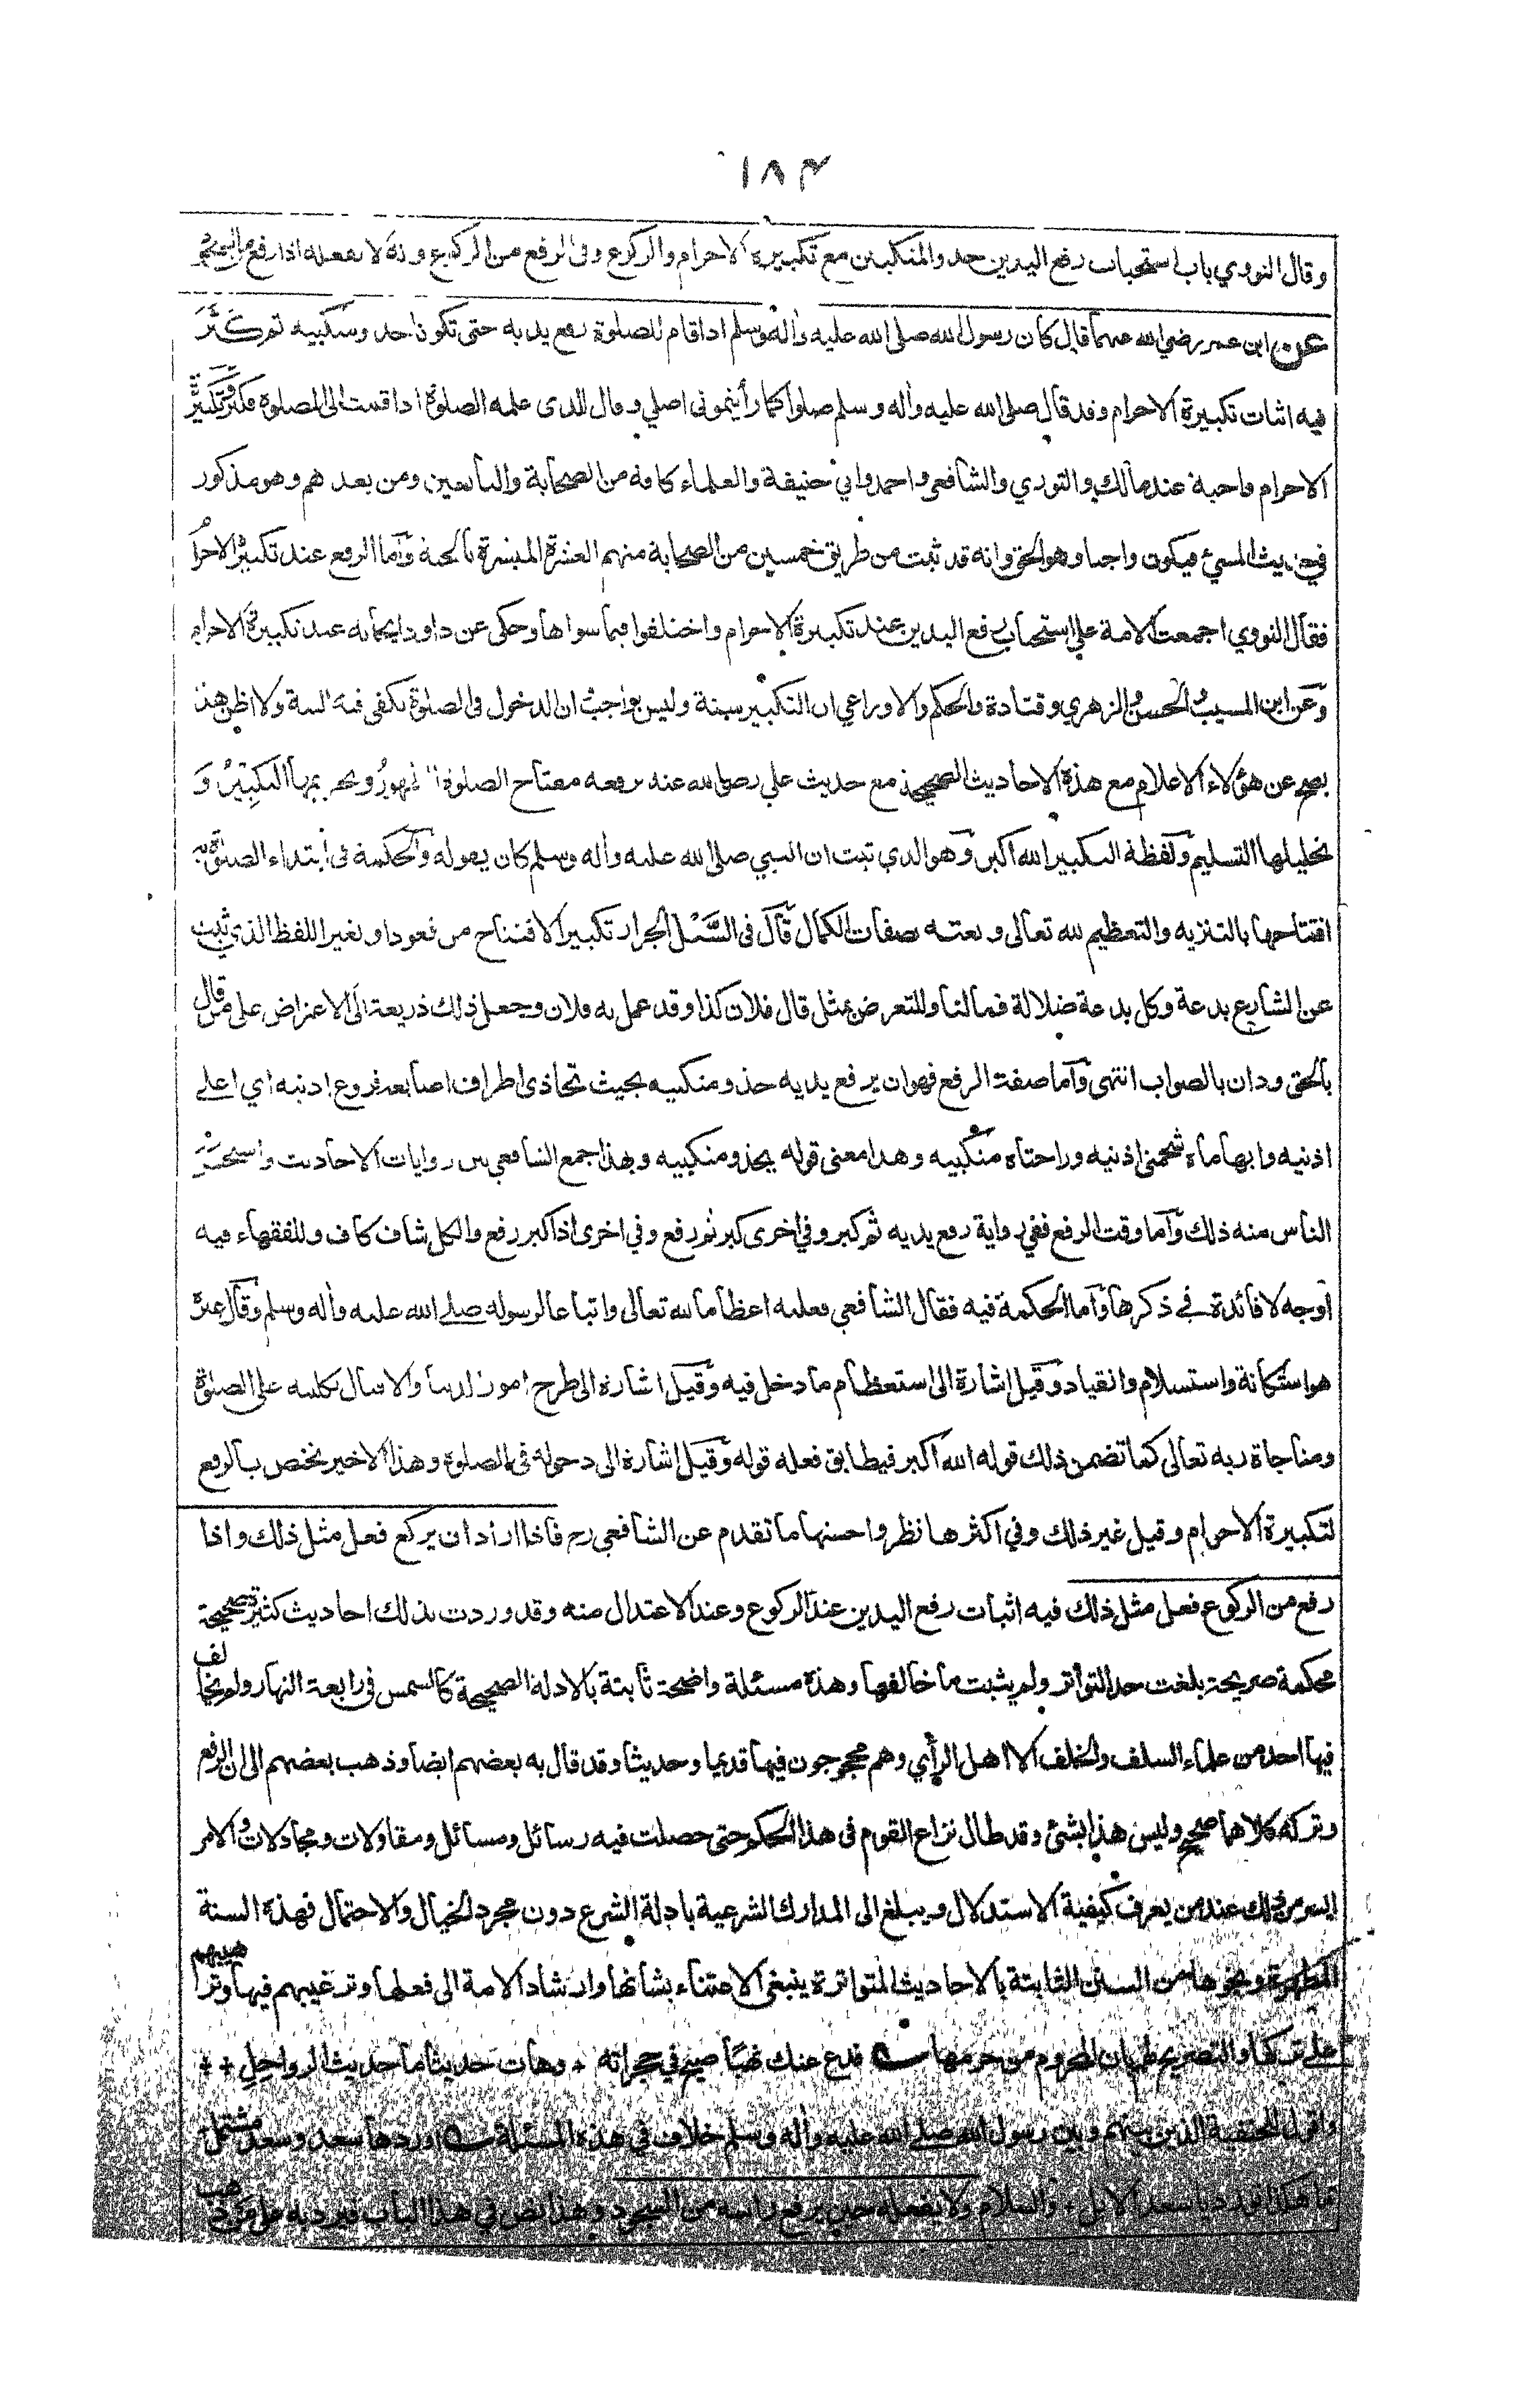 ١٨٣
وقال النووي باب استحباب رفع اليدين حذو المنكبين مع تكبيرة الاحرام والركوع وفى الرفع من الركوع وانه لا يفعله اذا رفع من السجود
عن ابن عمر رضي الله عنهما قال كان رسول الله صلى الله عليه واله وسلم اذا قام للصلوة رفع يديه حتى تكونا حذو منكبيه ثم كبر
فيه اثبات تكبيرة الاحرام وقد قال صلى الله عليه واله وسلم صلوا كما رأيتمونى اصلي وقال للذى علمه الصلوة اذا قمت الى الصلوة فكبر وتكبيرة
الاحرام واجبة عند مالك والثوري والشافعى واحمد وابي حنيفة والعلماء كافة من الصحابة والتابعين ومن بعدهم وهو مذكور
في حديث المسيئ فيكون واجبا وهو الحق وانه قد ثبت من طريق خمسين من الصحابة منهم العشرة المبشرة بالجنة وآما الرفع عند تكبيرة الاحرام
فقال النووي اجمعت الامة على استحباب رفع اليدين عند تكبيرة الاحرام واختلفوا فيما سواها وحكى عن داود ايجابه عند تكبيرة الاحرام
وعن ابن المسيب والحسن والزهري وقتادة والحكم والاوزاعي ان التكبير سنة وليس بواجب وان الدخول فى الصلوة يكفى فيه النية ولا اظن هذا
يصح عن هؤلاء الاعلام مع هذه الاحاديث الصحيحة مع حديث علي رضى الله عنه يرفعه مفتاح الصلوة الطهور وتحريمها التكبير و
تحليلها التسليم ولفظة التكبير الله اكبر وهو الذي ثبت ان النبي صلى الله عليه واله وسلم كان يقوله والحكمة فى ابتداء الصلوة به
افتتاحها بالتنزيه والتعظيم لله تعالى ونعته بصفات الكمال قال فى السيل الجرار تكبير الافتتاح من قعود او بغير اللفظ الذي ثبت
عن الشارع بدعة وكل بدعة ضلالة فما لنا وللتعرض بمثل قال فلان كذا وقد عمل به فلان وجعل ذلك ذريعة الى الاعتراض على من قال
بالحق ودان بالصواب انتهى وآما صفة الرفع فهو ان يرفع يديه حذو منكبيه بحيث تحاذى اطراف اصابعه فروع اذنيه اي اعلى
اذنيه وابهاماه شحمتي اذنيه وراحتاه منكبيه وهذا معنى قوله بحذو منكبيه وبهذا جمع الشافعي بين روايات الاحاديث واستحسن
الناس منه ذلك وآما وقت الرفع ففي رواية رفع يديه ثم كبر وفي اخرى كبر ثم رفع وفي اخرى اذا كبر رفع والكل شاف كاف وللفقهاء فيه
اوجه لا فائدة في ذكرها وآما الحكمة فيه فقال الشافعي فعله اعظاما لله تعالى واتباعا لرسوله صلى الله عليه واله وسلم وقال غيره
هو استكانة واستسلام وانقياد وقيل اشارة الى استعظام ما دخل فيه وقيل اشارة الى طرح امور الدنيا والاقبال بكليته على الصلوة
ومناجاة ربه تعالى كما تضمن ذلك قوله الله اكبر فيطابق فعله قوله وقيل اشارة الى دخوله في الصلوة وهذا الاخير يختص بالرفع
لتكبيرة الاحرام وقيل غير ذلك وفي اكثرها نظر واحسنها ما تقدم عن الشافعي رح فاذا اراد ان يركع فعل مثل ذلك واذا
رفع من الركوع فعل مثل ذلك فيه اثبات رفع اليدين عند الركوع وعند الاعتدال منه وقد وردت بذلك احاديث كثيرة صحيحة
محكمة صريحة بلغت حد التواتر ولم يثبت ما خالفها وهذه مسئلة واضحة ثابتة بالادلة الصحيحة كالشمس فى رابعة النهار ولم يخالف
فيها احد من علماء السلف والخلف الا اهل الرأي وهم محجوجون فيها قديما وحديثا وقد قال به بعضهم ايضا وذهب بعضهم الى ان الرفع
وتركه كلاهما صحيح وليس هذا بشئ وقد طال نزاع القوم فى هذا الحكم حتى حصلت فيه رسائل ومسائل ومقاولات ومجادلات والامر
ايسر من ذلك عند من يعرف كيفية الاستدلال ويبلغ الى المدارك الشرعية بادلة الشرع دون مجرد الخيال والاحتمال فهذه السنة
المطهرة ونحوها من السنن الثابتة بالاحاديث المتواترة ينبغى الاعتناء بشأنها وارشاد الامة الى فعلها وترغيبهم فيها وترهيبهم
على تركها والتصريح لهم بان المحروم من حرمها فدع عنك نهبا صيح في حجراته + وهات حديثا ما حديث الرواحل ++
واقول للحنفية الذين بينهم وبين رسول الله صلى الله عليه واله وسلم خلاف في هذه المسئلة اوردها سعد وسعد مشتمل
ما هكذا تورد يا سعد الابل + والسلام ولا يفعله حين يرفع راسه من السجود وهذا نص في هذا الباب فيرد به على من ذهب